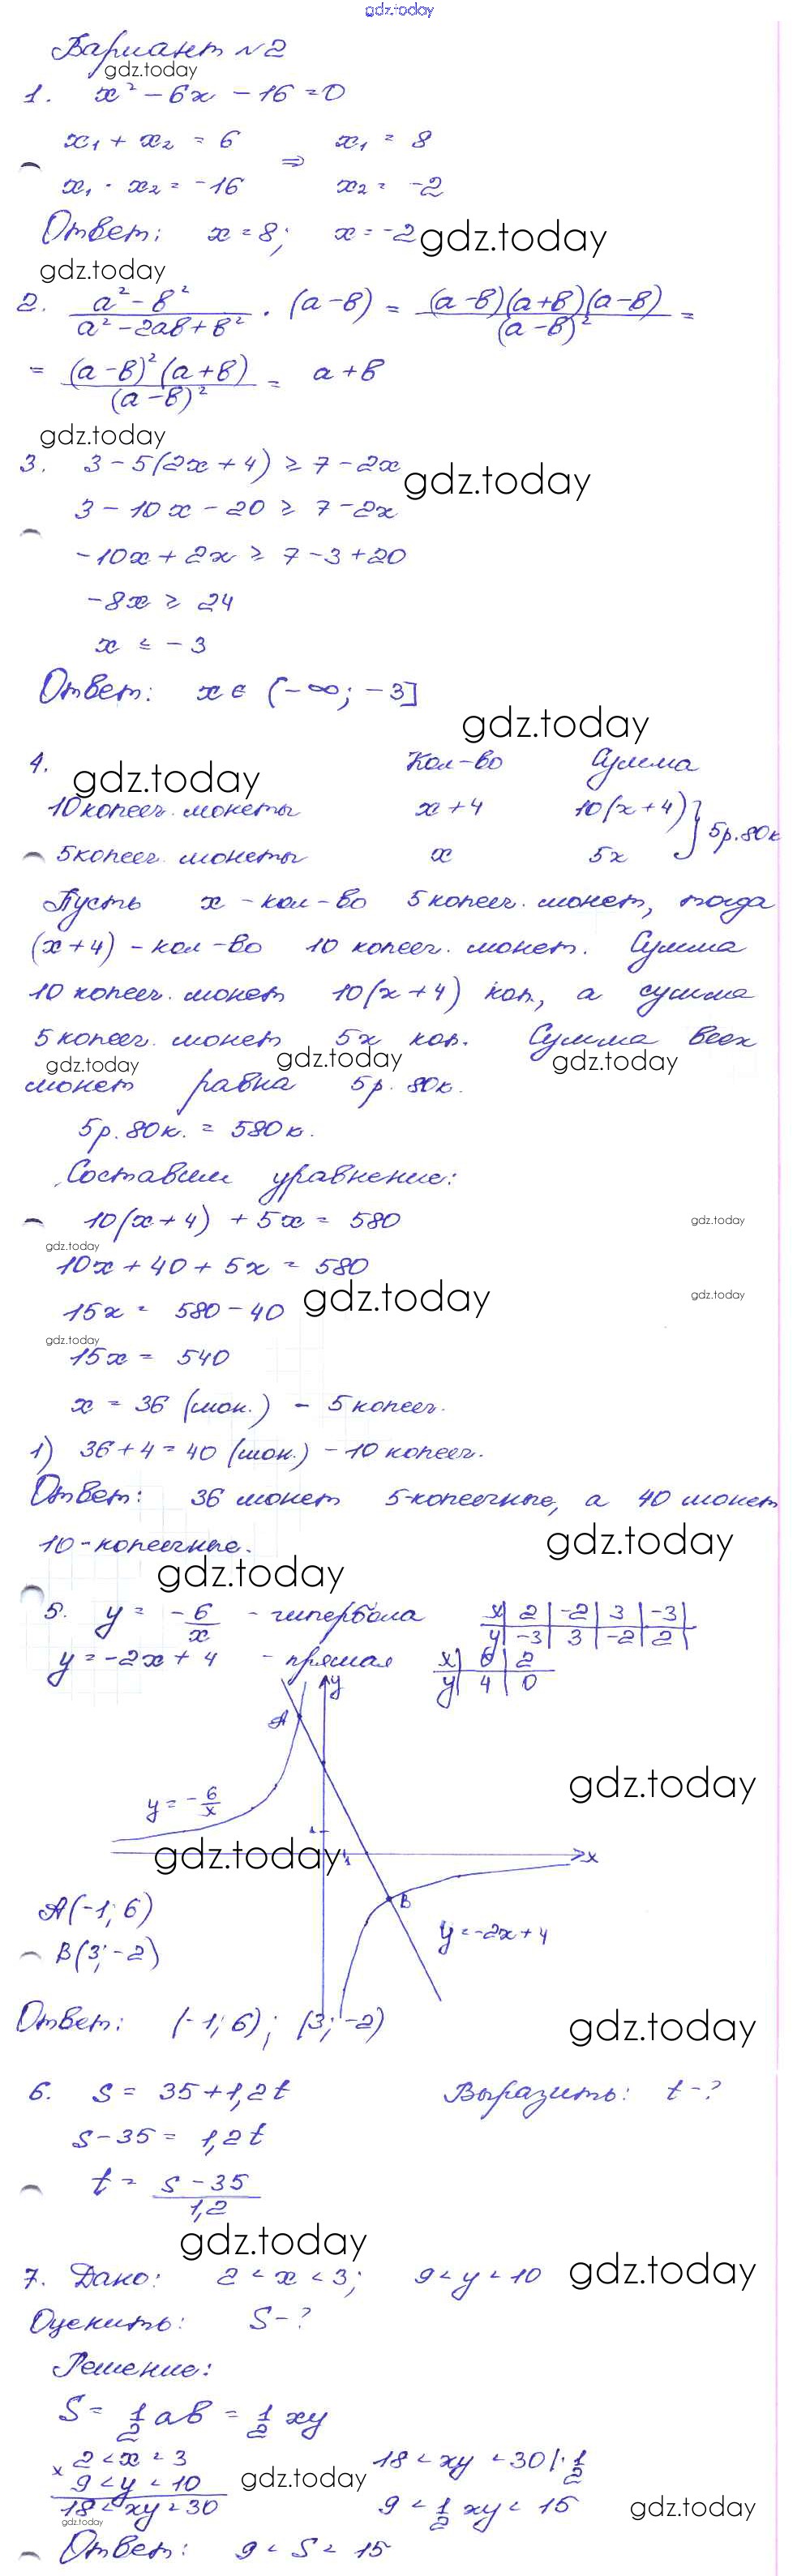 gdz.today
Вариант №2
gdz.today
1. x² - 6x - 16 = 0
x₁ + x₂ = 6 ⇒ x₁ = 8
x₁ · x₂ = -16 x₂ = -2
Ответ: x = 8; x = -2 gdz.today
gdz.today
2. (a² - в²)/(a² - 2aв + в²) · (a - в) = ((a - в)(a + в)(a - в))/(a - в)² =
= ((a - в)² (a + в))/(a - в)² = a + в
gdz.today
3. 3 - 5(2x + 4) ≥ 7 - 2x gdz.today
3 - 10x - 20 ≥ 7 - 2x
-10x + 2x ≥ 7 - 3 + 20
-8x ≥ 24
x ≤ -3
Ответ: x ∈ (-∞; -3]
gdz.today
4. gdz.today Кол-во Сумма
10 копееч. монеты x + 4 10(x + 4) } 5р. 80к
5 копееч. монеты x 5x
Пусть x - кол-во 5 копееч. монет, тогда
(x + 4) - кол-во 10 копееч. монет. Сумма
10 копееч. монет 10(x + 4) коп, а сумма
5 копееч. монет 5x коп. Сумма всех
gdz.today gdz.today gdz.today
монет равна 5р. 80к.
5р. 80к. = 580к.
Составим уравнение:
10(x + 4) + 5x = 580 gdz.today
gdz.today
10x + 40 + 5x = 580
15x = 580 - 40 gdz.today gdz.today
gdz.today
15x = 540
x = 36 (мон.) - 5 копееч.
1) 36 + 4 = 40 (мон.) - 10 копееч.
Ответ: 36 монет 5-копеечные, а 40 монет
10-копеечные. gdz.today
gdz.today
5. y = -6/x - гипербола x | 2 | -2 | 3 | -3 |
y | -3 | 3 | -2 | 2 |
y = -2x + 4 - прямая x | 0 | 2
y | 4 | 0
y
A
gdz.today
y = -6/x
1
gdz.today 1 x
B
A(-1; 6)
y = -2x + 4
B(3; -2)
Ответ: (-1; 6); (3; -2) gdz.today
6. S = 35 + 1,2t Выразить: t - ?
S - 35 = 1,2t
t = (S - 35)/1,2
gdz.today
7. Дано: 2 < x < 3; 9 < y < 10 gdz.today
Оценить: S - ?
Решение:
S = 1/2 aв = 1/2 xy
× 2 < x < 3 18 < xy < 30 | · 1/2
9 < y < 10 gdz.today
18 < xy < 30 9 < 1/2 xy < 15 gdz.today
gdz.today
Ответ: 9 < S < 15